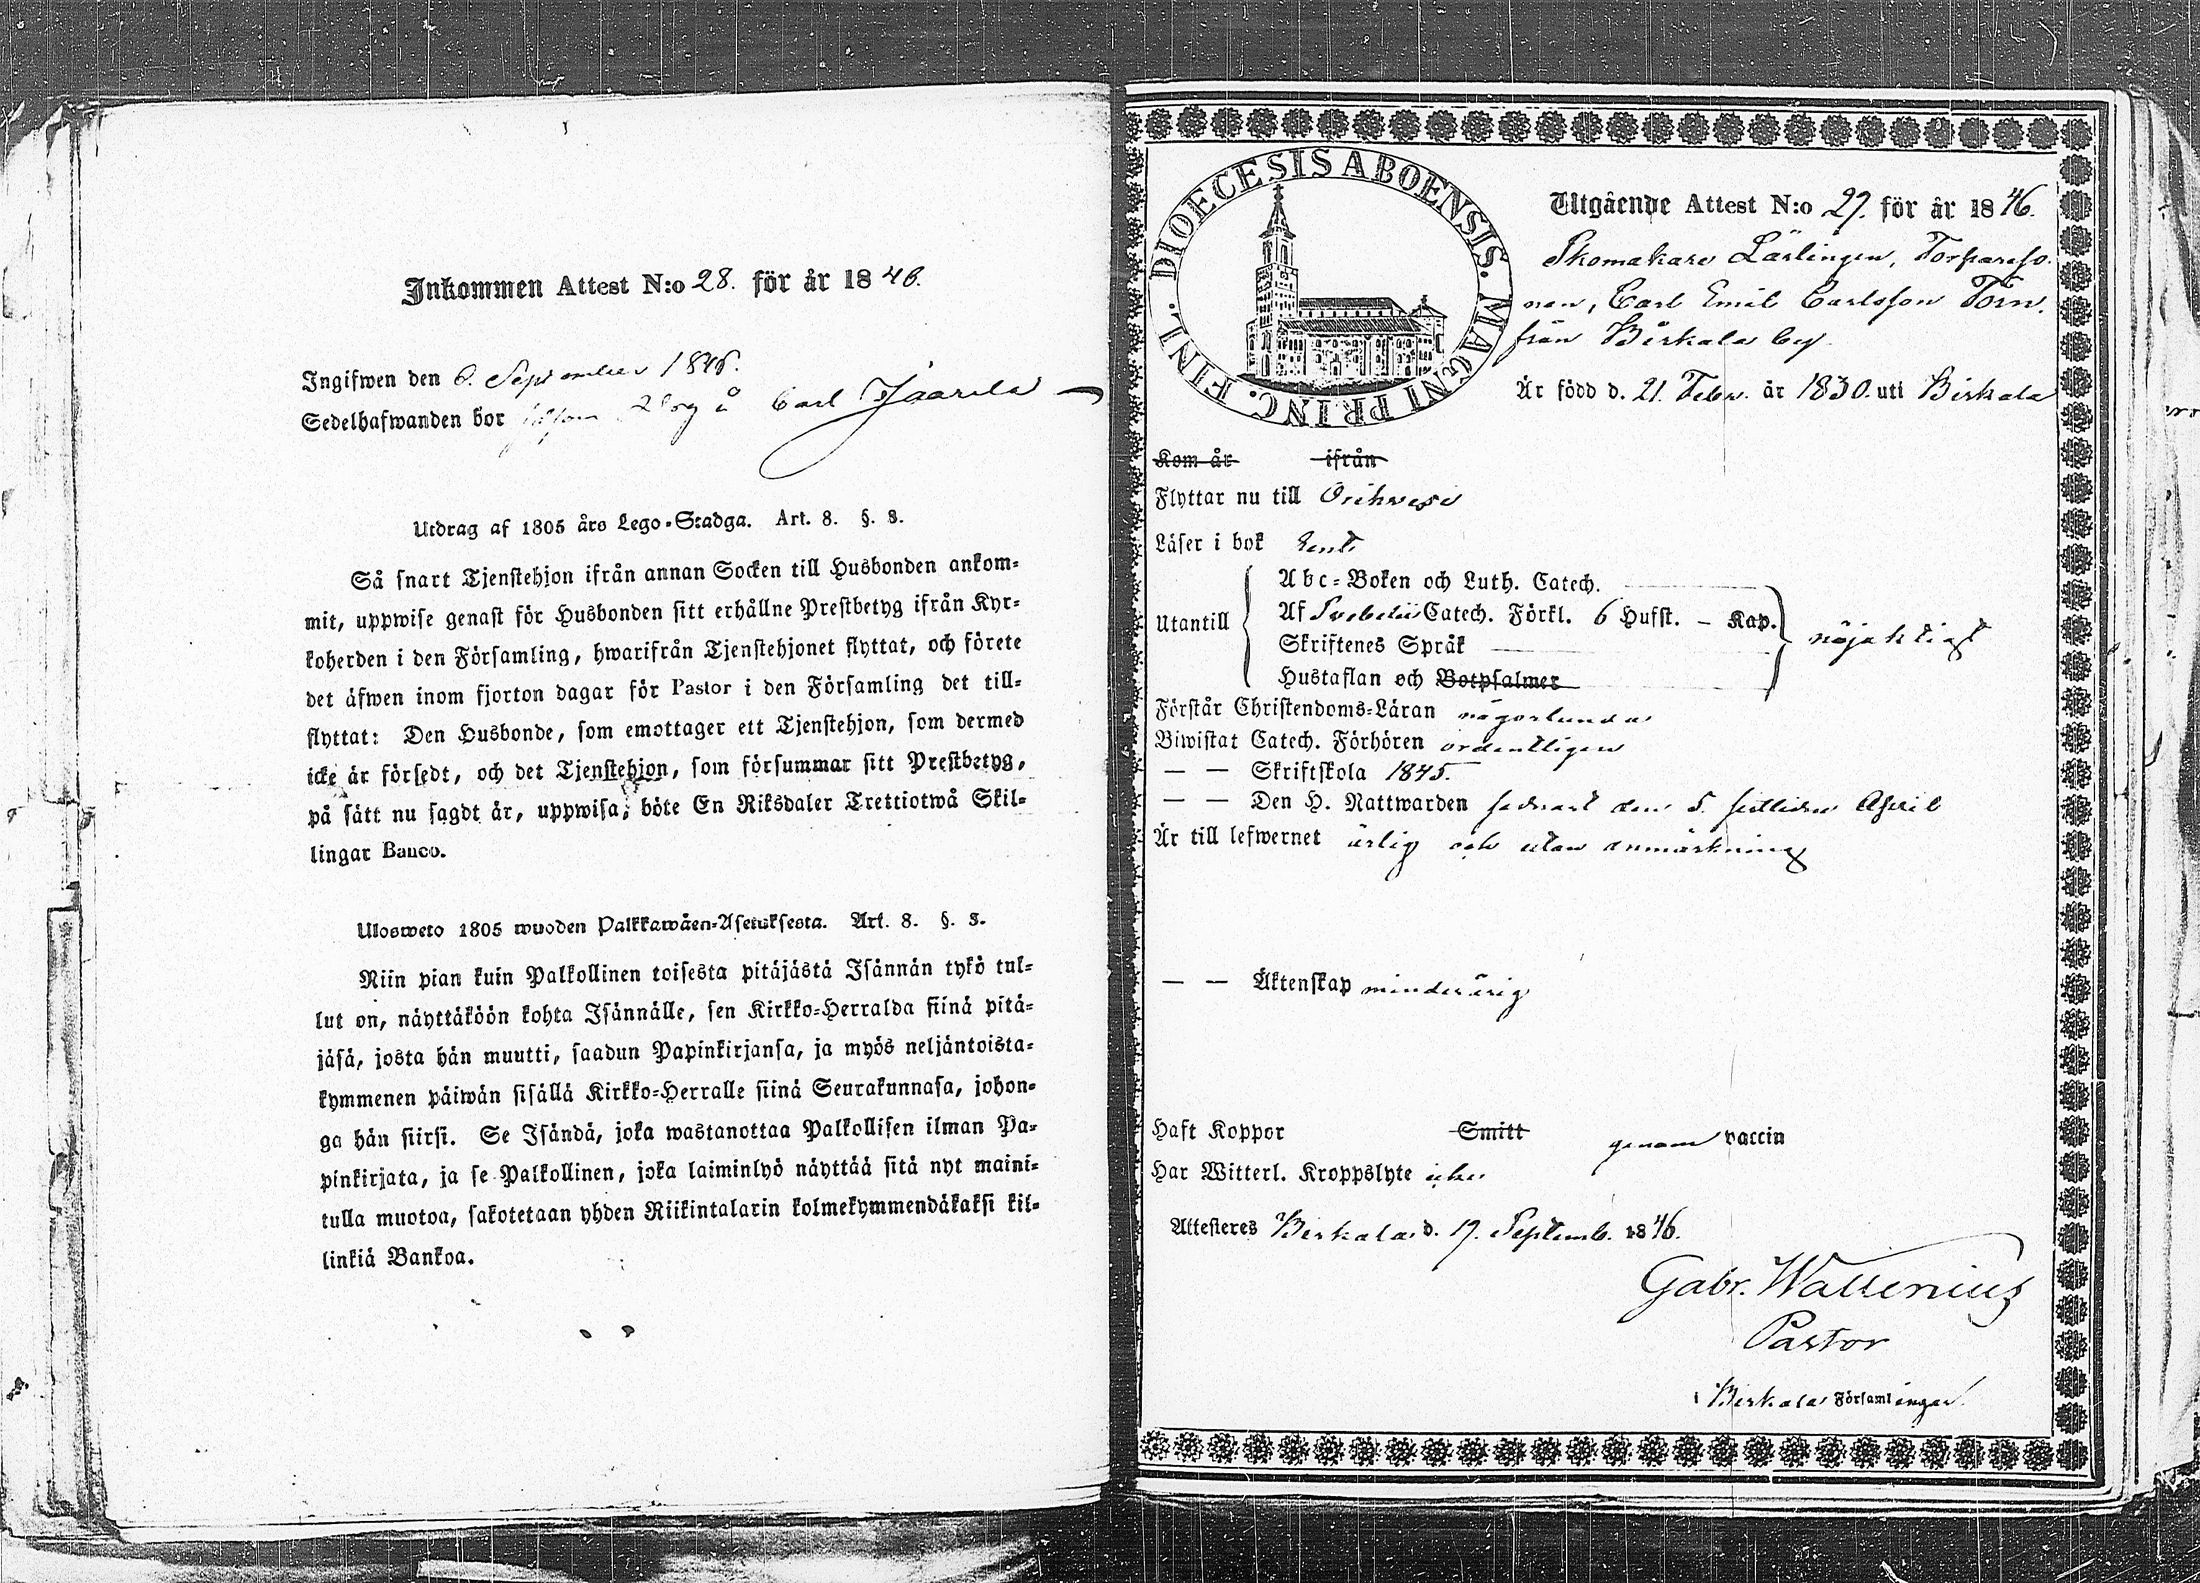 Inkommen Attest N:o 28. för år 1846.
Ingifwen den 6. September 1846.
Sedelhafwanden bor å Carl Jaarila
Utdrag af 1805 års Lego-Stadga. Art. 8. §. 3.
Så snart Tjenstehjon ifrån annan Socken till Husbonden ankom-
mit, uppwise genast för Husbonden sitt erhållne Prestbetyg ifrån Kyr-
koherden i den Församling, hwarifrån Tjenstehjonet flyttat, och förete
det äfwen inom fjorton dagar för Pastor i den Församling det till-
flyttat: Den Husbonde, som emottager ett Tjenstehjon, som dermed
icke är försedt, och det Tjenstehjon, som försummar sitt Prestbetyg,
på sätt nu sagdt är, uppwisa, böte En Riksdaler Trettiotwå Skil-
lingar Banco.
Ulosweto 1805 wuoden Palkkawäen-Asetuksesta. Art. 8. §. 3.
Niin pian kuin Palkollinen toisesta pitäjästä Isännän tykö tul-
lut on, näyttäköön kohta Isännälle, sen Kirkko-Herralda siinä pitä-
jäsä, josta hän muutti, saadun Papinkirjansa, ja myös neljäntoista-
kymmenen päiwän sisällä Kirkko-Herralle siinä Seurakunnasa, johon-
ga hän siirsi. Se Isändä, joka wastanottaa Palkollisen ilman Pa-
pinkirjata, ja se Palkollinen, joka laiminlyö näyttää sitä nyt maini-
tulla muotoa, sakotetaan yhden Riikintalarin kolmekymmendäkaksi kil-
linkiä Bankoa.
DIOECESIS ABOENSIS. MAGNI PRINC. FINL.
Utgående Attest N:o 29. för år 1846.
Skomakare Lärlingen, Torpareso-
nen, Carl Emil Carlsson Törn.
från Birkala by
Är född d. 21. Febr. år 1830. uti Birkala
Kom år ifrån
Flyttar nu till Orihvesi
Läser i bok
Utantill
Abc-Boken och Luth. Catech.
Af Svebelii Catech. Förkl. 6 Hufst. – Kap.
Skriftenes Språk
Hustaflan och Botpsalmer
nöjaktigt
Förstår Christendoms-Läran någorlunda
Biwistat Catech. Förhören ordentligen
— — Skriftskola 1845.
— — Den H. Nattwarden sednast den 5. sistlidne April
Är till lefwernet ärlig och utan anmärkning
— — Äktenskap minderårig
Haft Koppor Smitt genom vaccin
Har Witterl. Kroppslyte icke
Attesteres Birkala d. 17. Septemb. 1846.
Gabr. Wallenius
Pastor
i Birkala Församlingar.